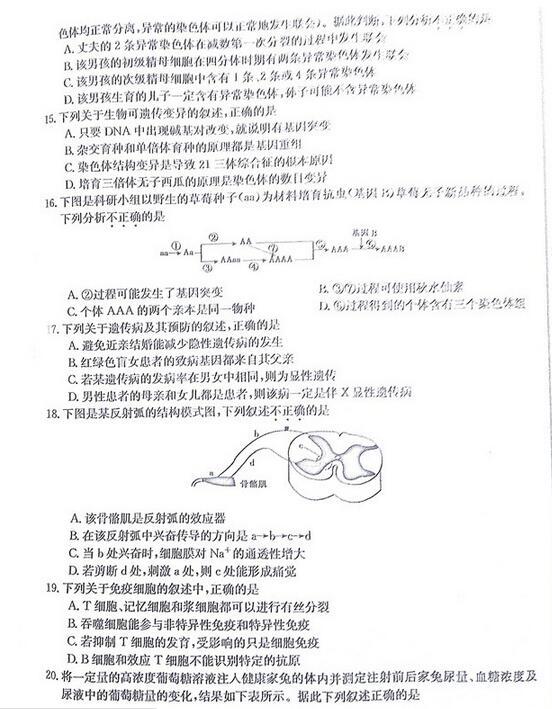 色体均正常分离,异常的染色体可以正常地发生联会)。据此判断,下列分析不正确的是
A. 丈夫的2条异常染色体在减数第一次分裂的过程中发生联会
B. 该男孩的初级精母细胞在四分体时期有两条异常染色体发生联会
C. 该男孩的次级精母细胞中含有1条、2条或4条异常染色体
D. 该男孩生育的儿子一定含有异常染色体,孙子可能不含异常染色体
15. 下列关于生物可遗传变异的叙述,正确的是
A. 只要DNA中出现碱基对改变,就说明有基因突变
B. 杂交育种和单倍体育种的原理都是基因重组
C. 染色体结构变异是导致21三体综合征的根本原因
D. 培育三倍体无子西瓜的原理是染色体的数目变异
16. 下图是科研小组以野生的草莓种子(aa)为材料培育抗虫(基因B)草莓无子新品种的过程。
下列分析不正确的是
基因B
② AA ⑤
aa ① Aa ⑥ AAA AAAB
③ AAaa ④ AAAA
A. ②过程可能发生了基因突变 B. ③⑦过程可使用秋水仙素
C. 个体AAA的两个亲本是同一物种 D. ⑥过程得到的个体含有三个染色体组
17. 下列关于遗传病及其预防的叙述,正确的是
A. 避免近亲结婚能减少隐性遗传病的发生
B. 红绿色盲女患者的致病基因都来自其父亲
C. 若某遗传病的发病率在男女中相同,则为显性遗传
D. 男性患者的母亲和女儿都是患者,则该病一定是伴X显性遗传病
18. 下图是某反射弧的结构模式图,下列叙述不正确的是
b
c
a d
骨骼肌
A. 该骨骼肌是反射弧的效应器
B. 在该反射弧中兴奋传导的方向是a→b→c→d
C. 当b处兴奋时,细胞膜对Na⁺的通透性增大
D. 若剪断d处,刺激a处,则c处能形成痛觉
19. 下列关于免疫细胞的叙述中,正确的是
A. T细胞、记忆细胞和浆细胞都可以进行有丝分裂
B. 吞噬细胞能参与非特异性免疫和特异性免疫
C. 若抑制T细胞的发育,受影响的只是细胞免疫
D. B细胞和效应T细胞不能识别特定的抗原
20. 将一定量的高浓度葡萄糖溶液注入健康家兔的体内并测定注射前后家兔尿量、血糖浓度及
尿液中的葡萄糖量的变化,结果如下表所示。据此下列叙述正确的是